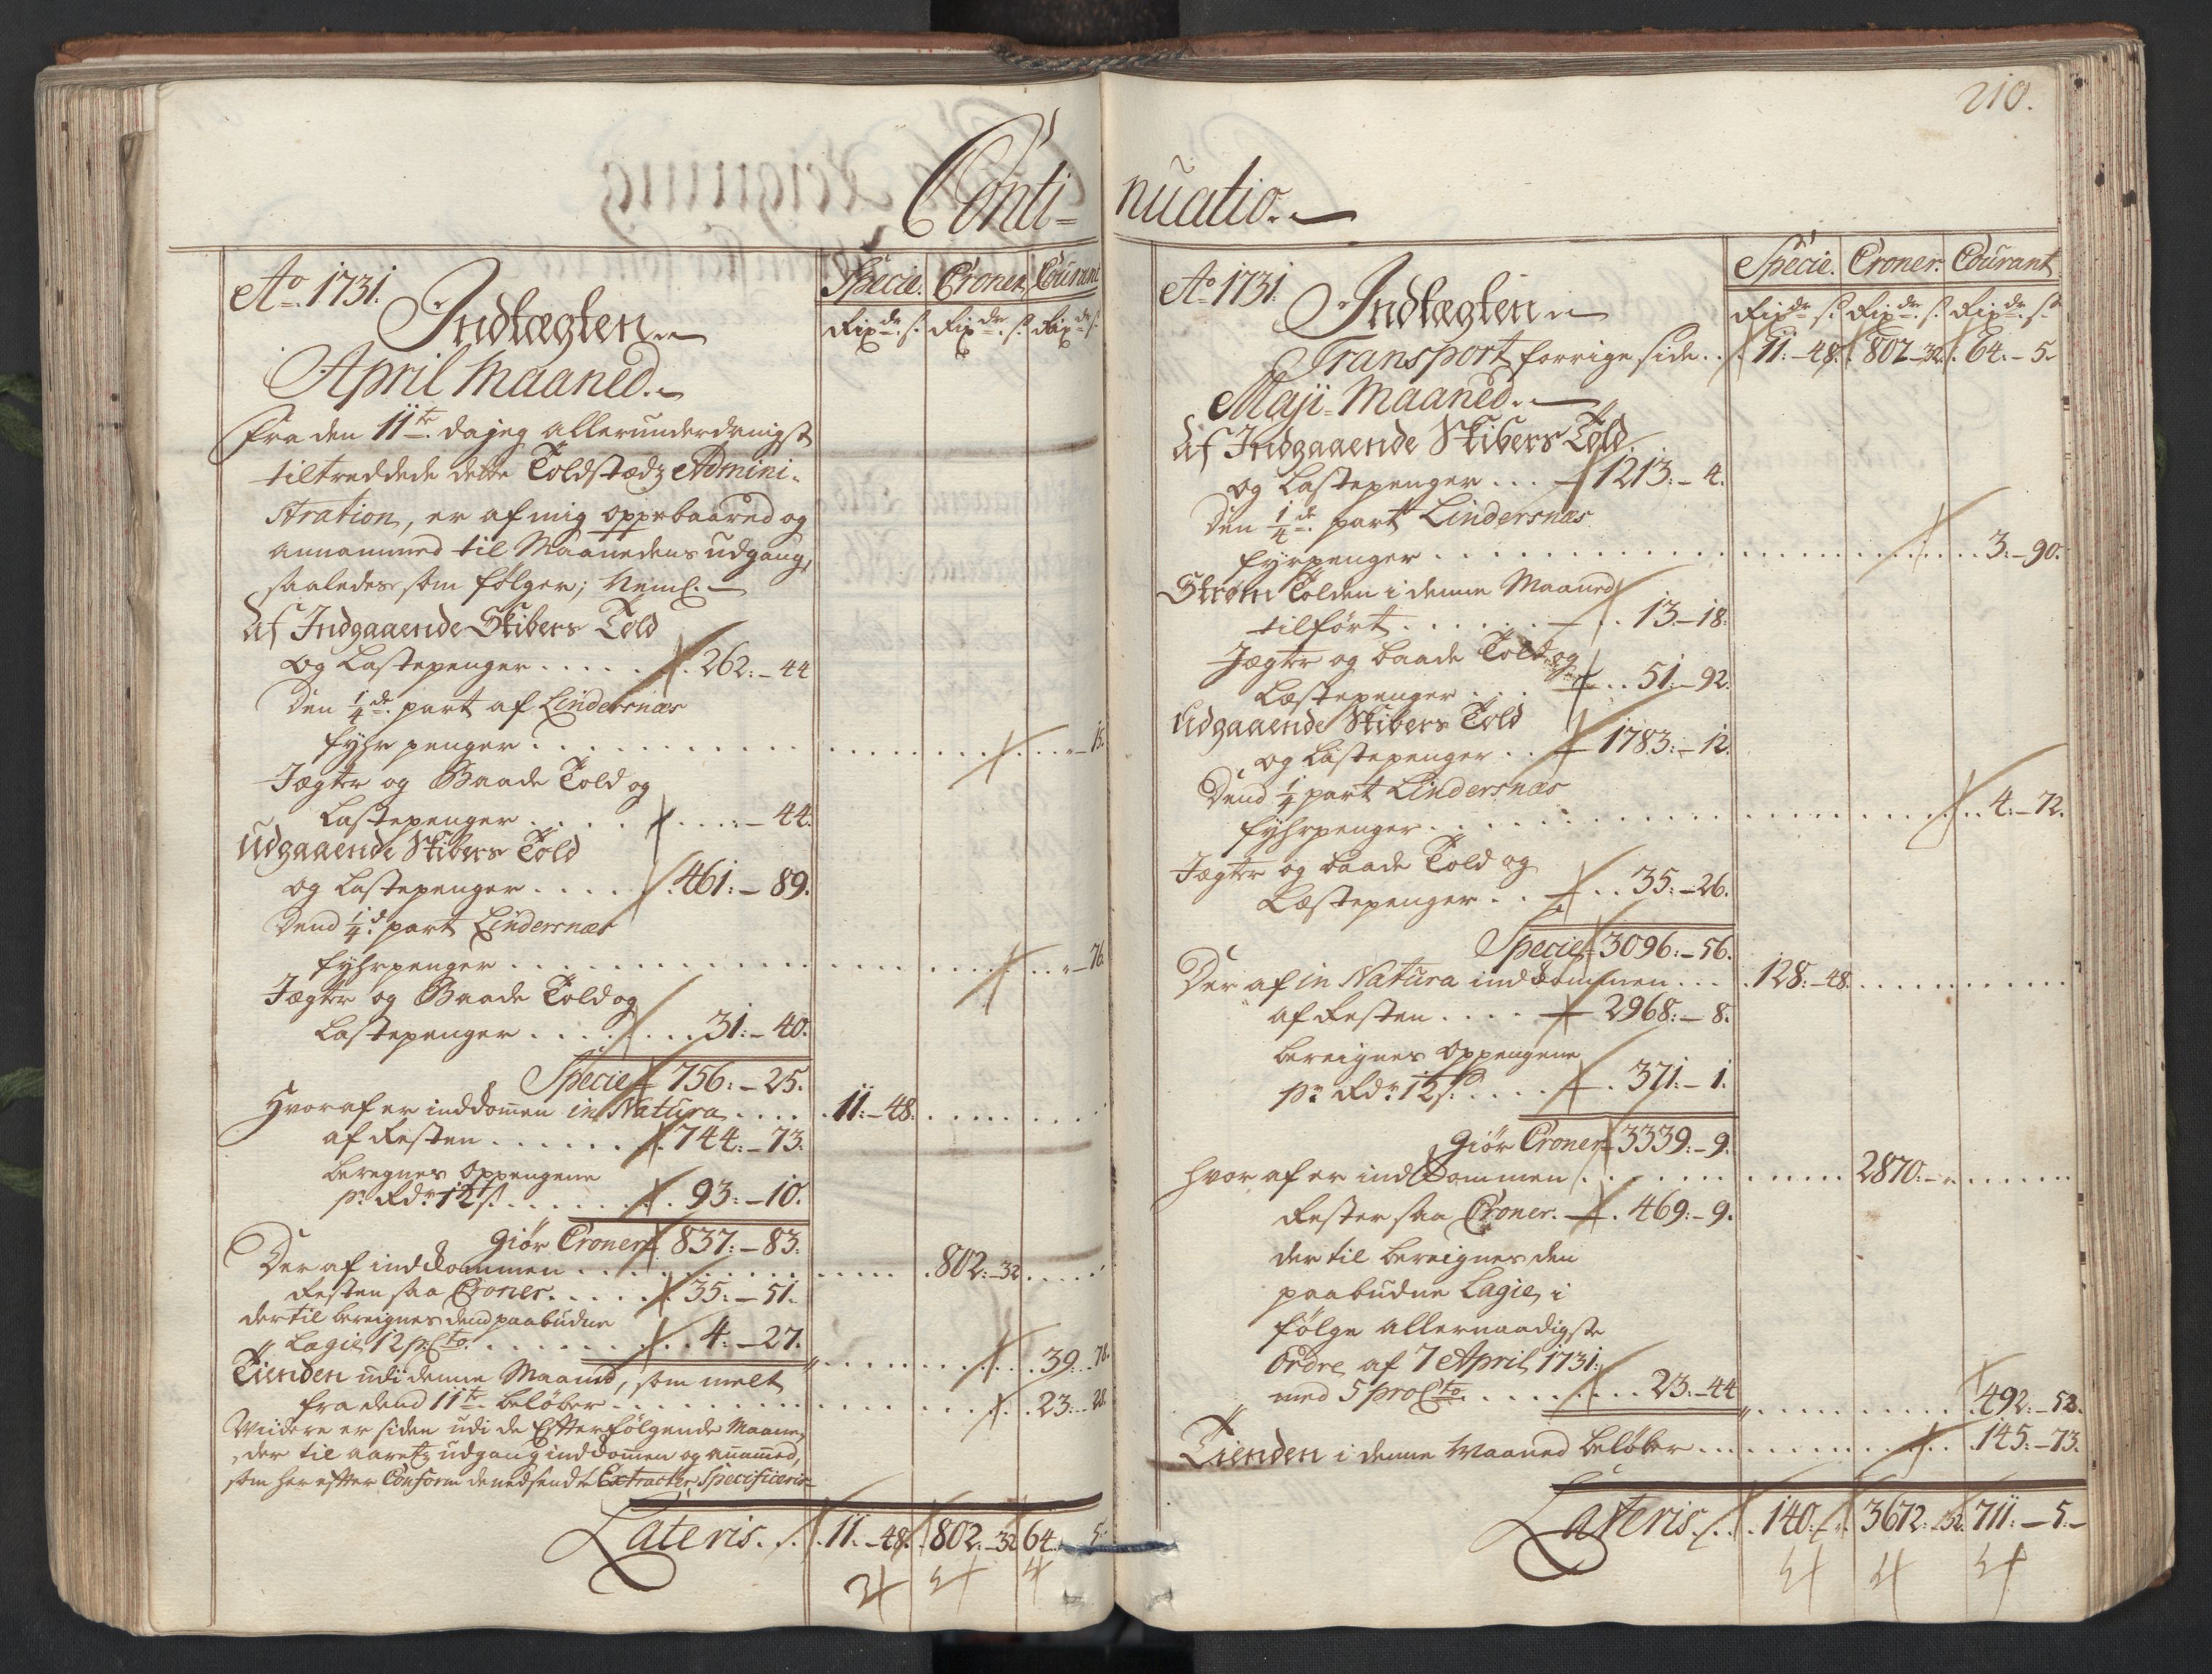 Conti=
Ao. 1731.
Indtægten
Specie. Croner. Courant
Rixdr. s. Rixdr. s. Rixdr. s.
April Maaned.
Fra den 11te. da jeg allerunderdanigst
tiltreddede dette Toldstædz Admini-
stration, er af mig oppebaared og
annammed til Maanedens udgang,
saaledes som følger; Neml.
Af Indgaaende Skibers Told
og Lastepenger . . . . . 262:-44
Den 1/4de. part af Lindersnæs
fyhr penger . . . . . -15.
Jægter og Baade Told og
Lastepenger . . . . . -44.
Udgaaende Skibers Told
og Lastepenger . . . . . 461:-89.
Dend 1/4d. part Lindersnæs
fyhrpenger . . . . . -76.
Jægter og Baade Told og
Lastepenger . . . . . 31:-40.
Specie 756:-25.
Hvoraf er indkomen in Natura . . . . 11:-48.
af Resten . . . . . 744:-73.
beregnes Oppengene
pr. Rdr. 12 s. . . . . . 93:-10.
giør Croner 837:-83.
Der af indkommen . . . . . 802:-32
Resten saa Croner . . . . . 35:-51.
dertil bereignes dend paabudne
Lagie 12 p Cto. . . . . . 4:-27.
39:-78.
Tienden udi denne Maaned, som melt
fra dend 11te. beløber . . . . . 23:-28.
Viidere er siden udi de Effterfølgende Maane-
der til aaretz udgang indkomen og anammed,
som her effter Conform de nedsendte Extracter Specificeris
Lateris . . 11.-48. 802:-32 64.-5.
210.
nuatio.
Ao. 1731.
Indtægten
Specie. Croner. Courant
Rixdr. s. Rixdr. s. Rixdr. s.
Transport forrige side . . 11.-48. 802-32. 64.-5.
Maji Maaned.
Af Indgaaende Skibers Told
og Lastepenger . . . 1213:-4.
Den 1/4de. part Lindersnæs
fyrpenger . . . . . 3.-90.
Strøm Tolden i denne Maaned
tilført . . . . . 13.-18.
Jægter og baade Told og
Læstepenger . . . . . 51.-92.
Udgaaende Skibers Told
og Lastepenger . . 1783:-12.
Dend 1/4 part Lindersnæs
fyhrpenger . . . . . 4.-72.
Jægter og baade Told og
Læstepenger . . . . 35:-26.
Specie 3096:-56.
Der af in Natura indkommen . . . 128:-48.
af Resten . . . . 2968:-8.
bereignes Oppengene
pr. Rdr. 12 s. . . . . 371.-1.
giør Croner 3339:-9.
hvor af er indkommen . . . . . 2870:-
Rester saa Croner. 469:-9.
der til bereignes den
paabudne Lagie, i
følge allernaadigste
Ordre af 7 April 1731.
med 5 pro Cto. . . . . . 23.-44
492:-53.
Tienden i denne Maaned beløber . . . . . 145:-73.
Lateris . . 140:- 3672:-32. 711.-5.